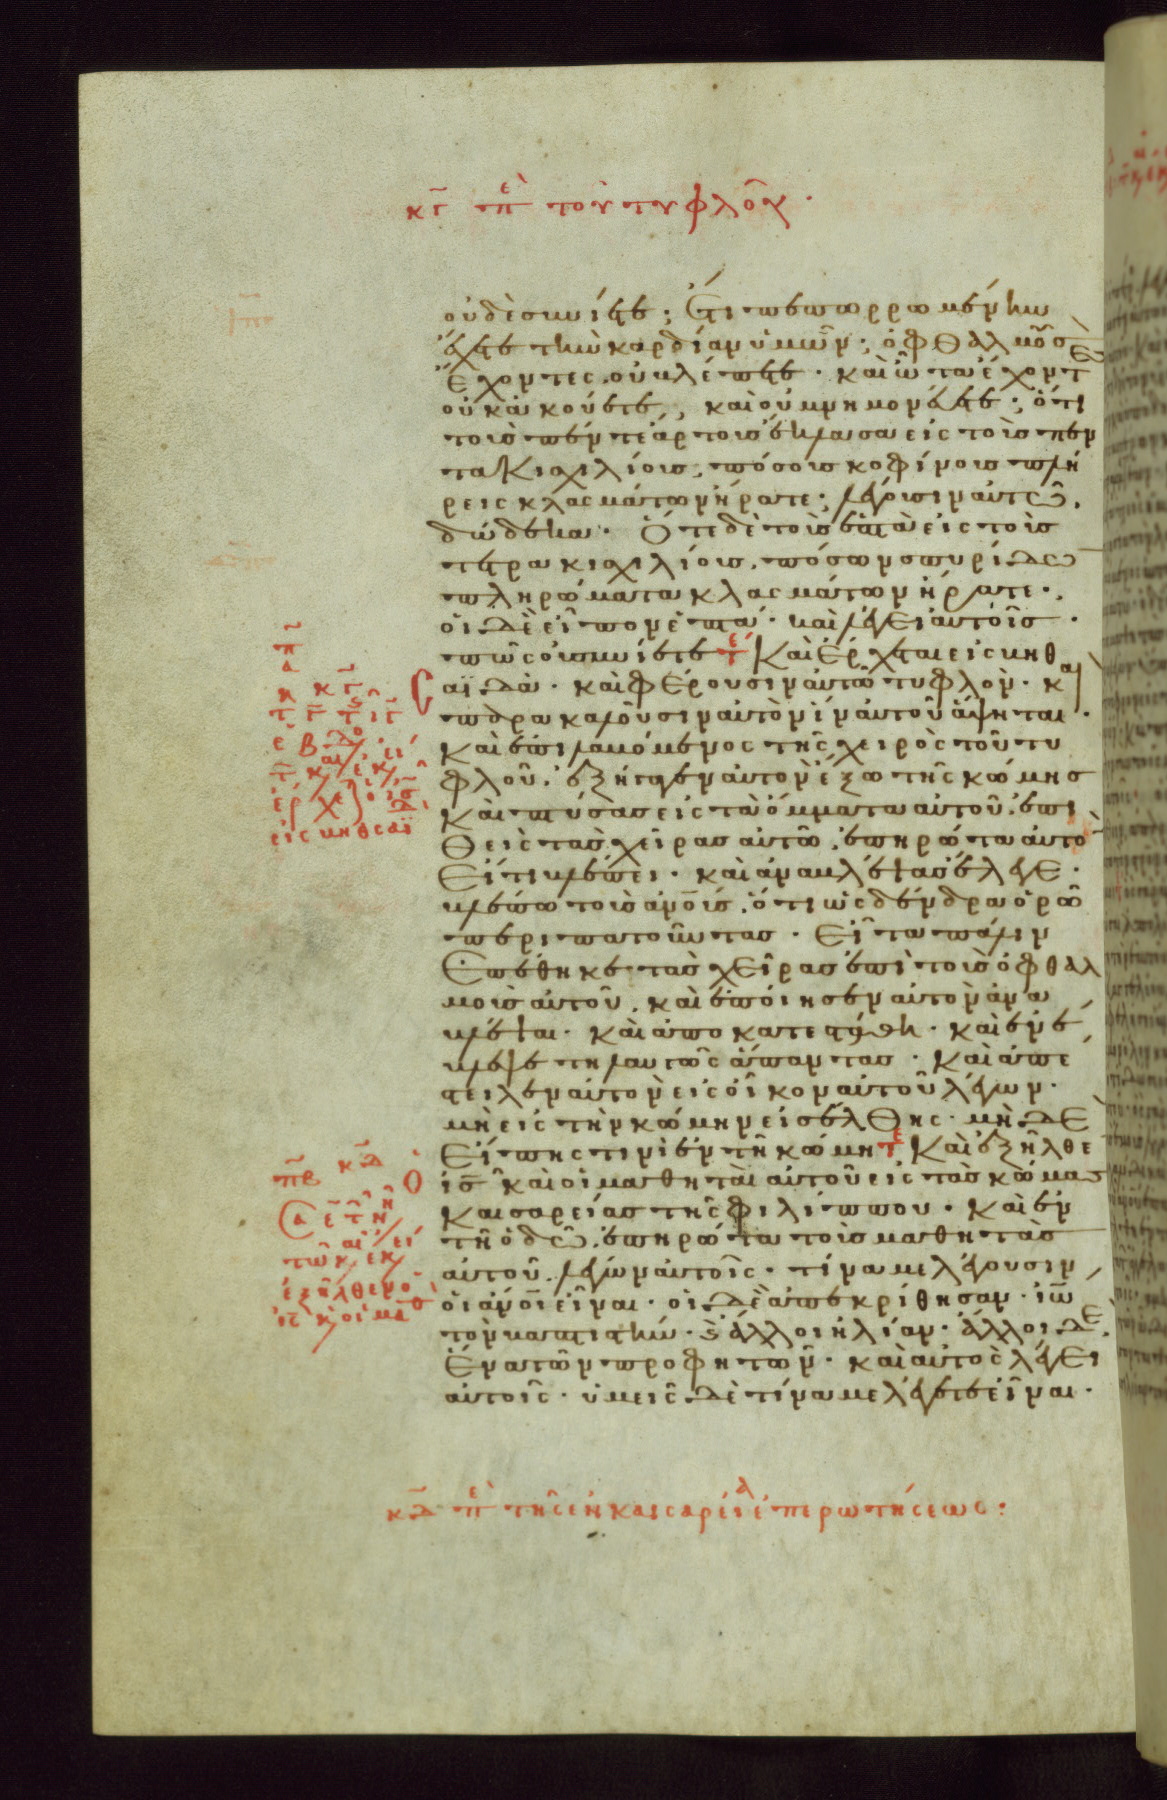 κγ πε του τυφλοῦ·
οὐδὲ συνίετε; Ἔτι πεπωρρωμένην
ἔχετε τὴν καρδίαν ὑμῶν; ὀφθαλμοὺς
ἔχοντες οὐ βλέπετε· καὶ ὦτα ἔχοντες
οὐκ ἀκούετε; καὶ οὐ μνημονεύετε; ὅτε
τοὺς πέντε ἄρτους ἔκλασα εἰς τοὺς πεν
τακισχιλίους, πόσους κοφίνους πλή
ρεις κλασμάτων ἤρατε; λέγουσιν αὐτῶ,
δώδεκα· Ὅτε δὲ τοὺς ἑπτὰ εἰς τοὺς
τετρακισχιλίους, πόσων σπυρίδων
πληρώματα κλασμάτων ἤρατε·
οἱ δὲ εἶπον ἑπτά· καὶ λέγει αὐτοῖς·
πῶς οὐ συνίετε τε Καὶ ἔρχεται εἰς βηθ
σαϊδὰ· καὶ φέρουσιν αὐτῶ τυφλὸν· καὶ
παρακαλοῦσιν αὐτὸν ἵνα αὐτοῦ ἅψηται·
καὶ ἐπιλαβόμενος τῆς χειρὸς τοῦ τυ
φλοῦ. ἐξήγαγεν αὐτὸν ἔξω τῆς κώμης
καὶ πτύσας εἰς τὰ ὄμματα αὐτοῦ. ἐπι
θεὶς τὰς χεῖρας αὐτῶ. ἐπηρώτα αὐτὸν
εἴ τι βλέπει· καὶ ἀναβλέψας ἔλεγε·
βλέπω τοὺς ἀνοὺς. ὅτι ὡς δένδρα ὁρῶ
περιπατοῦντας· Εἶτα πάλιν
ἐπέθηκε τὰς χεῖρας ἐπὶ τοὺς ὀφθαλ
μοὺς αὐτοῦ. καὶ ἐποίησεν αὐτὸν ἀνα
βλέψαι· καὶ ἀποκατεστάθη· καὶ ἐνέ
βλεψε τηλαυγῶς ἅπαντας· καὶ ἀπέ
στειλεν αὐτὸν εἰς οἶκον αὐτοῦ λέγων·
μὴ εἰς τὴν κώμην εἰσέλθης· μὴ δὲ
εἴπης τινὶ ἐν τῆ κώμη τε Καὶ ἐξῆλθε
ὁ ις καὶ οἱ μαθηταὶ αὐτοῦ εἰς τὰς κώμας
καισαρείας τῆς φιλίππου· καὶ ἐν
τῆ ὁδῶ. ἐπηρώτα τοὺς μαθητὰς
αὐτοῦ. λέγων αὐτοῖς· τίνα με λέγουσιν
οἱ ἀνοι εἶναι· οἱ δὲ ἀπεκρίθησαν· ἰω
τον βαπτιστὴν· καὶ ἄλλοι ηλίαν· ἄλλοι δὲ
ἕνα τῶν προφητῶν· καὶ αὐτὸς λέγει
αὐτοῖς· ὑμεῖς δὲ τίνα με λέγετε εἶναι·
κγ
εἰς βηθσαϊ
πβ κδ
ἐξῆλθεν ὁ
ις κ οἱ μαθ
κδ πε τῆς ἐν καισαρεία ἐπερωτήσεως: